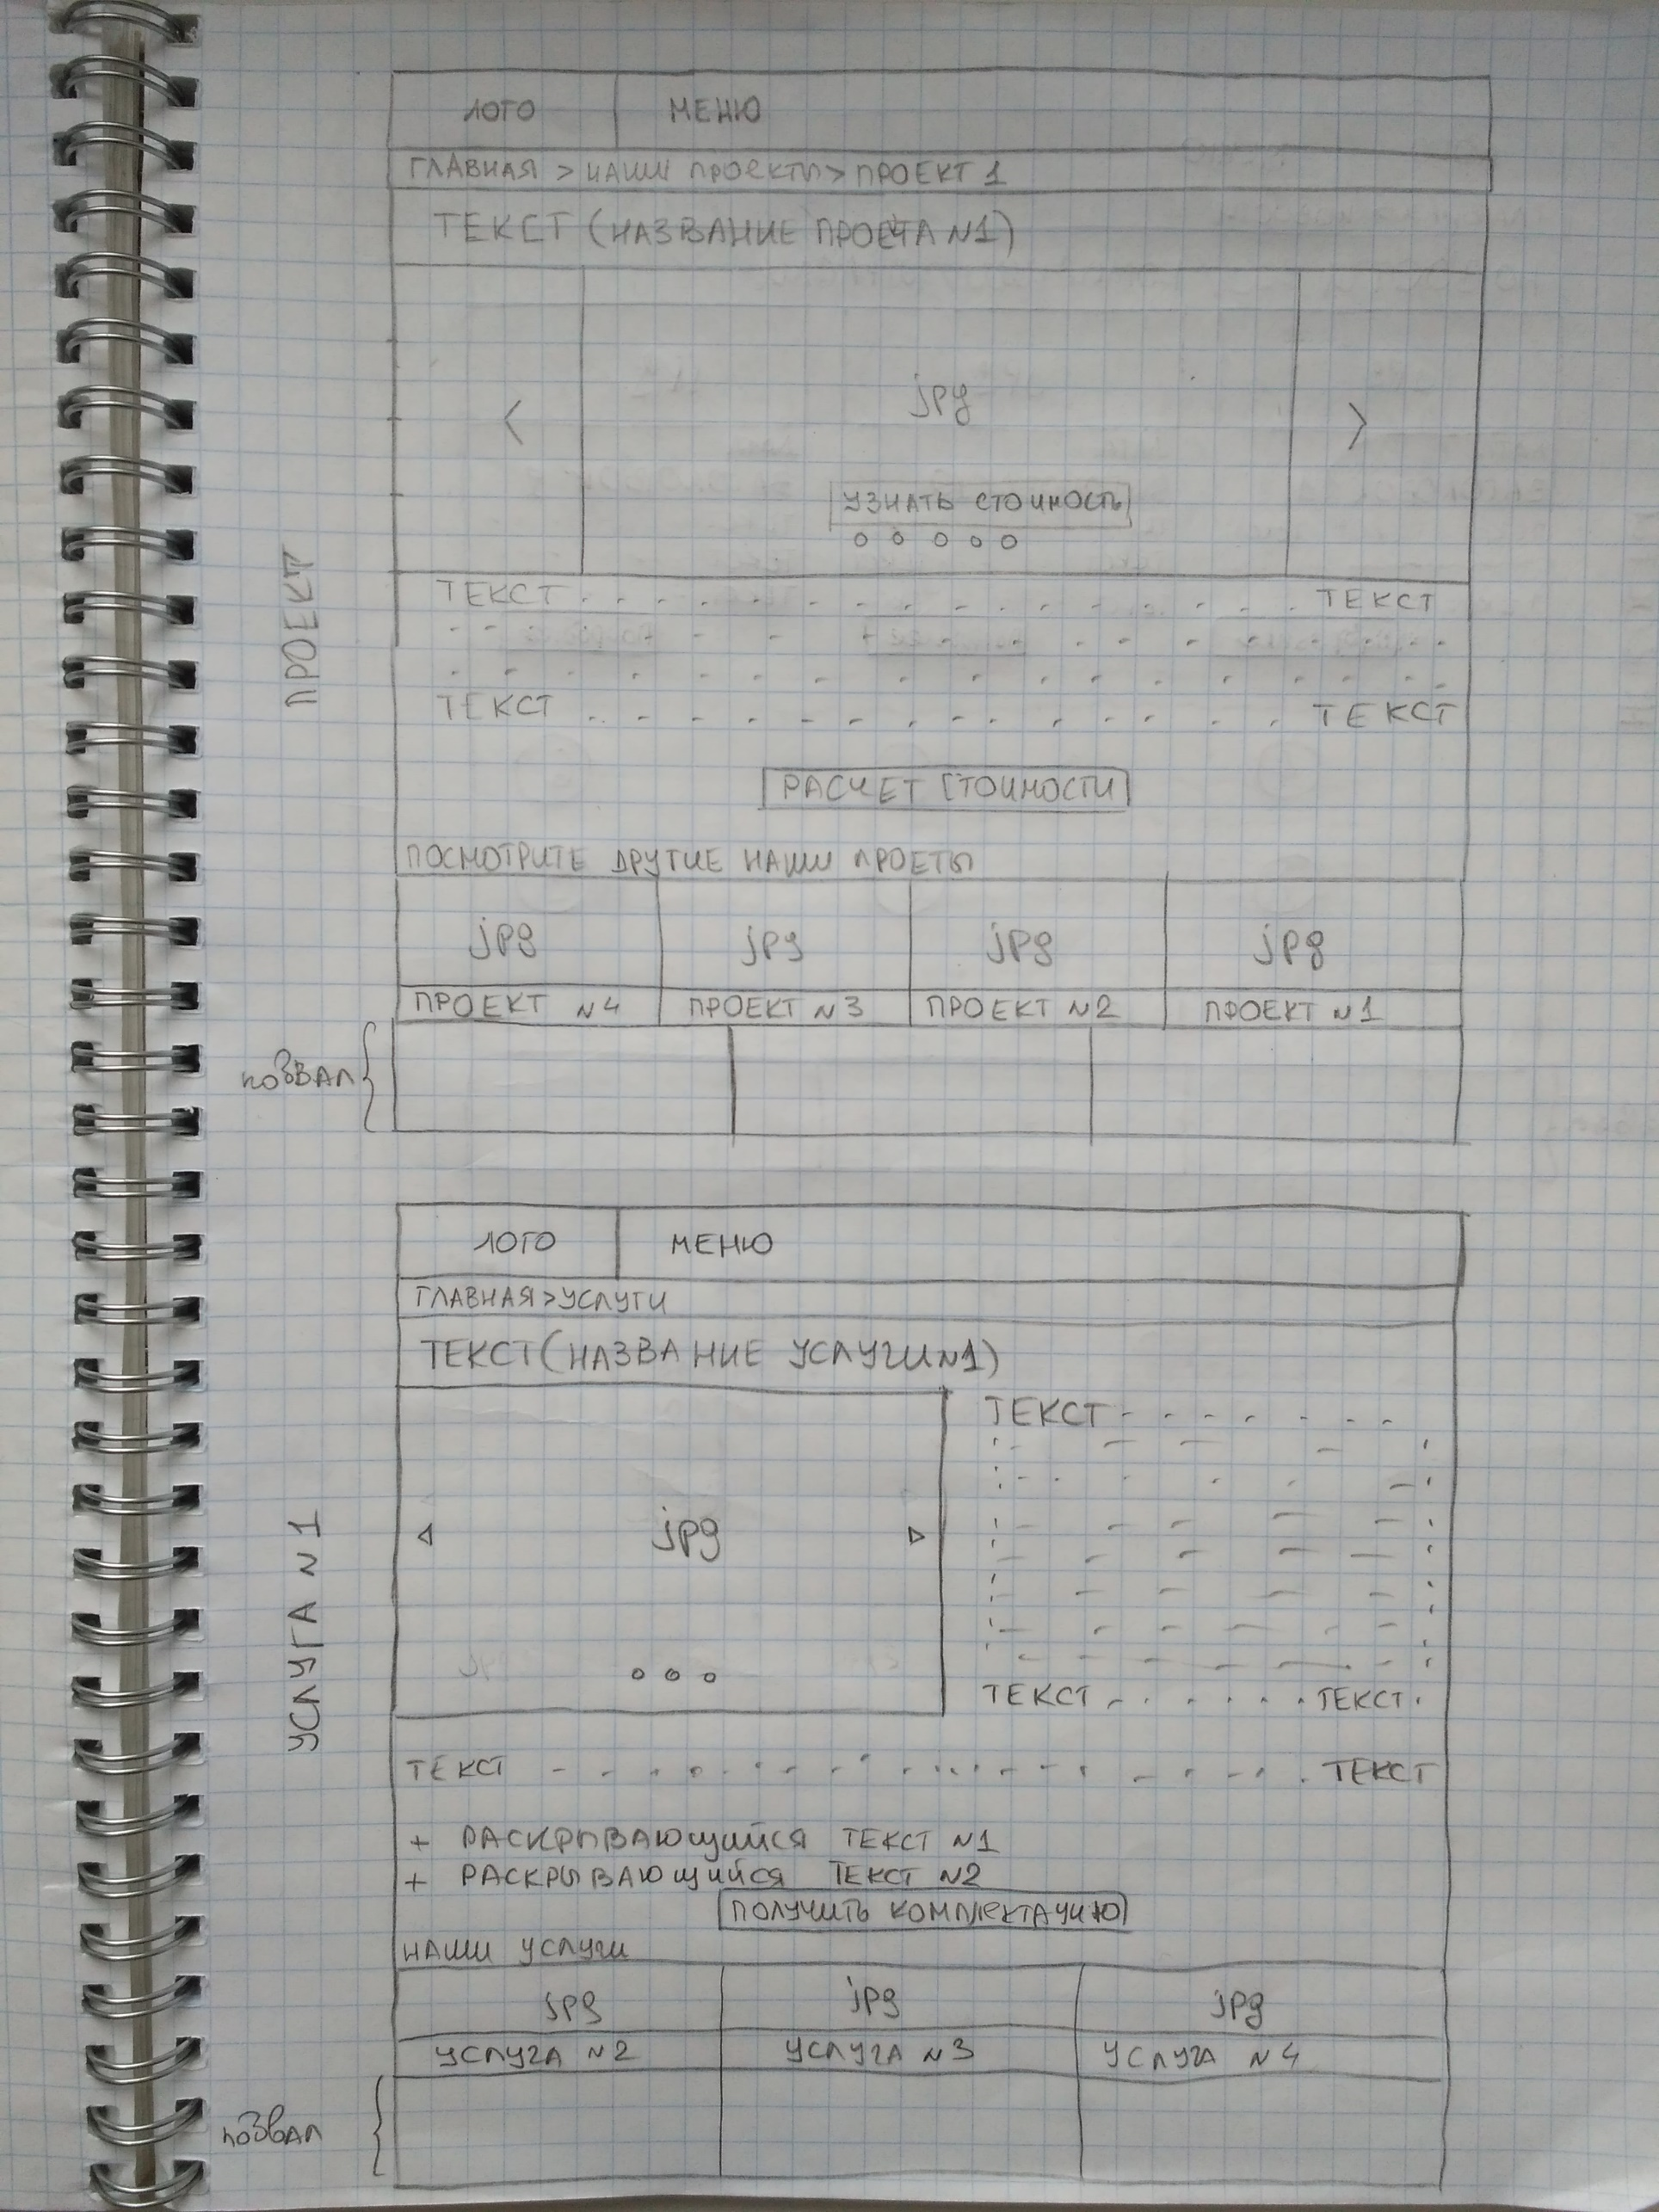 ПРОЕКТ
ЛОГО МЕНЮ
ГЛАВНАЯ > НАШИ ПРОЕКТЫ > ПРОЕКТ 1
ТЕКСТ (НАЗВАНИЕ ПРОЕКТА N1)
< jpg >
УЗНАТЬ СТОИМОСТЬ
ТЕКСТ ТЕКСТ
ТЕКСТ ТЕКСТ
РАСЧЕТ СТОИМОСТИ
ПОСМОТРИТЕ ДРУГИЕ НАШИ ПРОЕТЫ
jpg jpg jpg jpg
ПРОЕКТ N4 ПРОЕКТ N3 ПРОЕКТ N2 ПРОЕКТ N1
УСЛУГА N1
ЛОГО МЕНЮ
ГЛАВНАЯ > УСЛУГИ
ТЕКСТ (НАЗВАНИЕ УСЛУГИ N1)
jpg
ТЕКСТ
ТЕКСТ ТЕКСТ
ТЕКСТ ТЕКСТ
+ РАСКРЫВАЮЩИЙСЯ ТЕКСТ N1
+ РАСКРЫВАЮЩИЙСЯ ТЕКСТ N2
ПОЛУЧИТЬ КОМПЛЕКТАЦИЮ
НАШИ УСЛУГИ
jpg jpg jpg
УСЛУГА N2 УСЛУГА N3 УСЛУГА N4